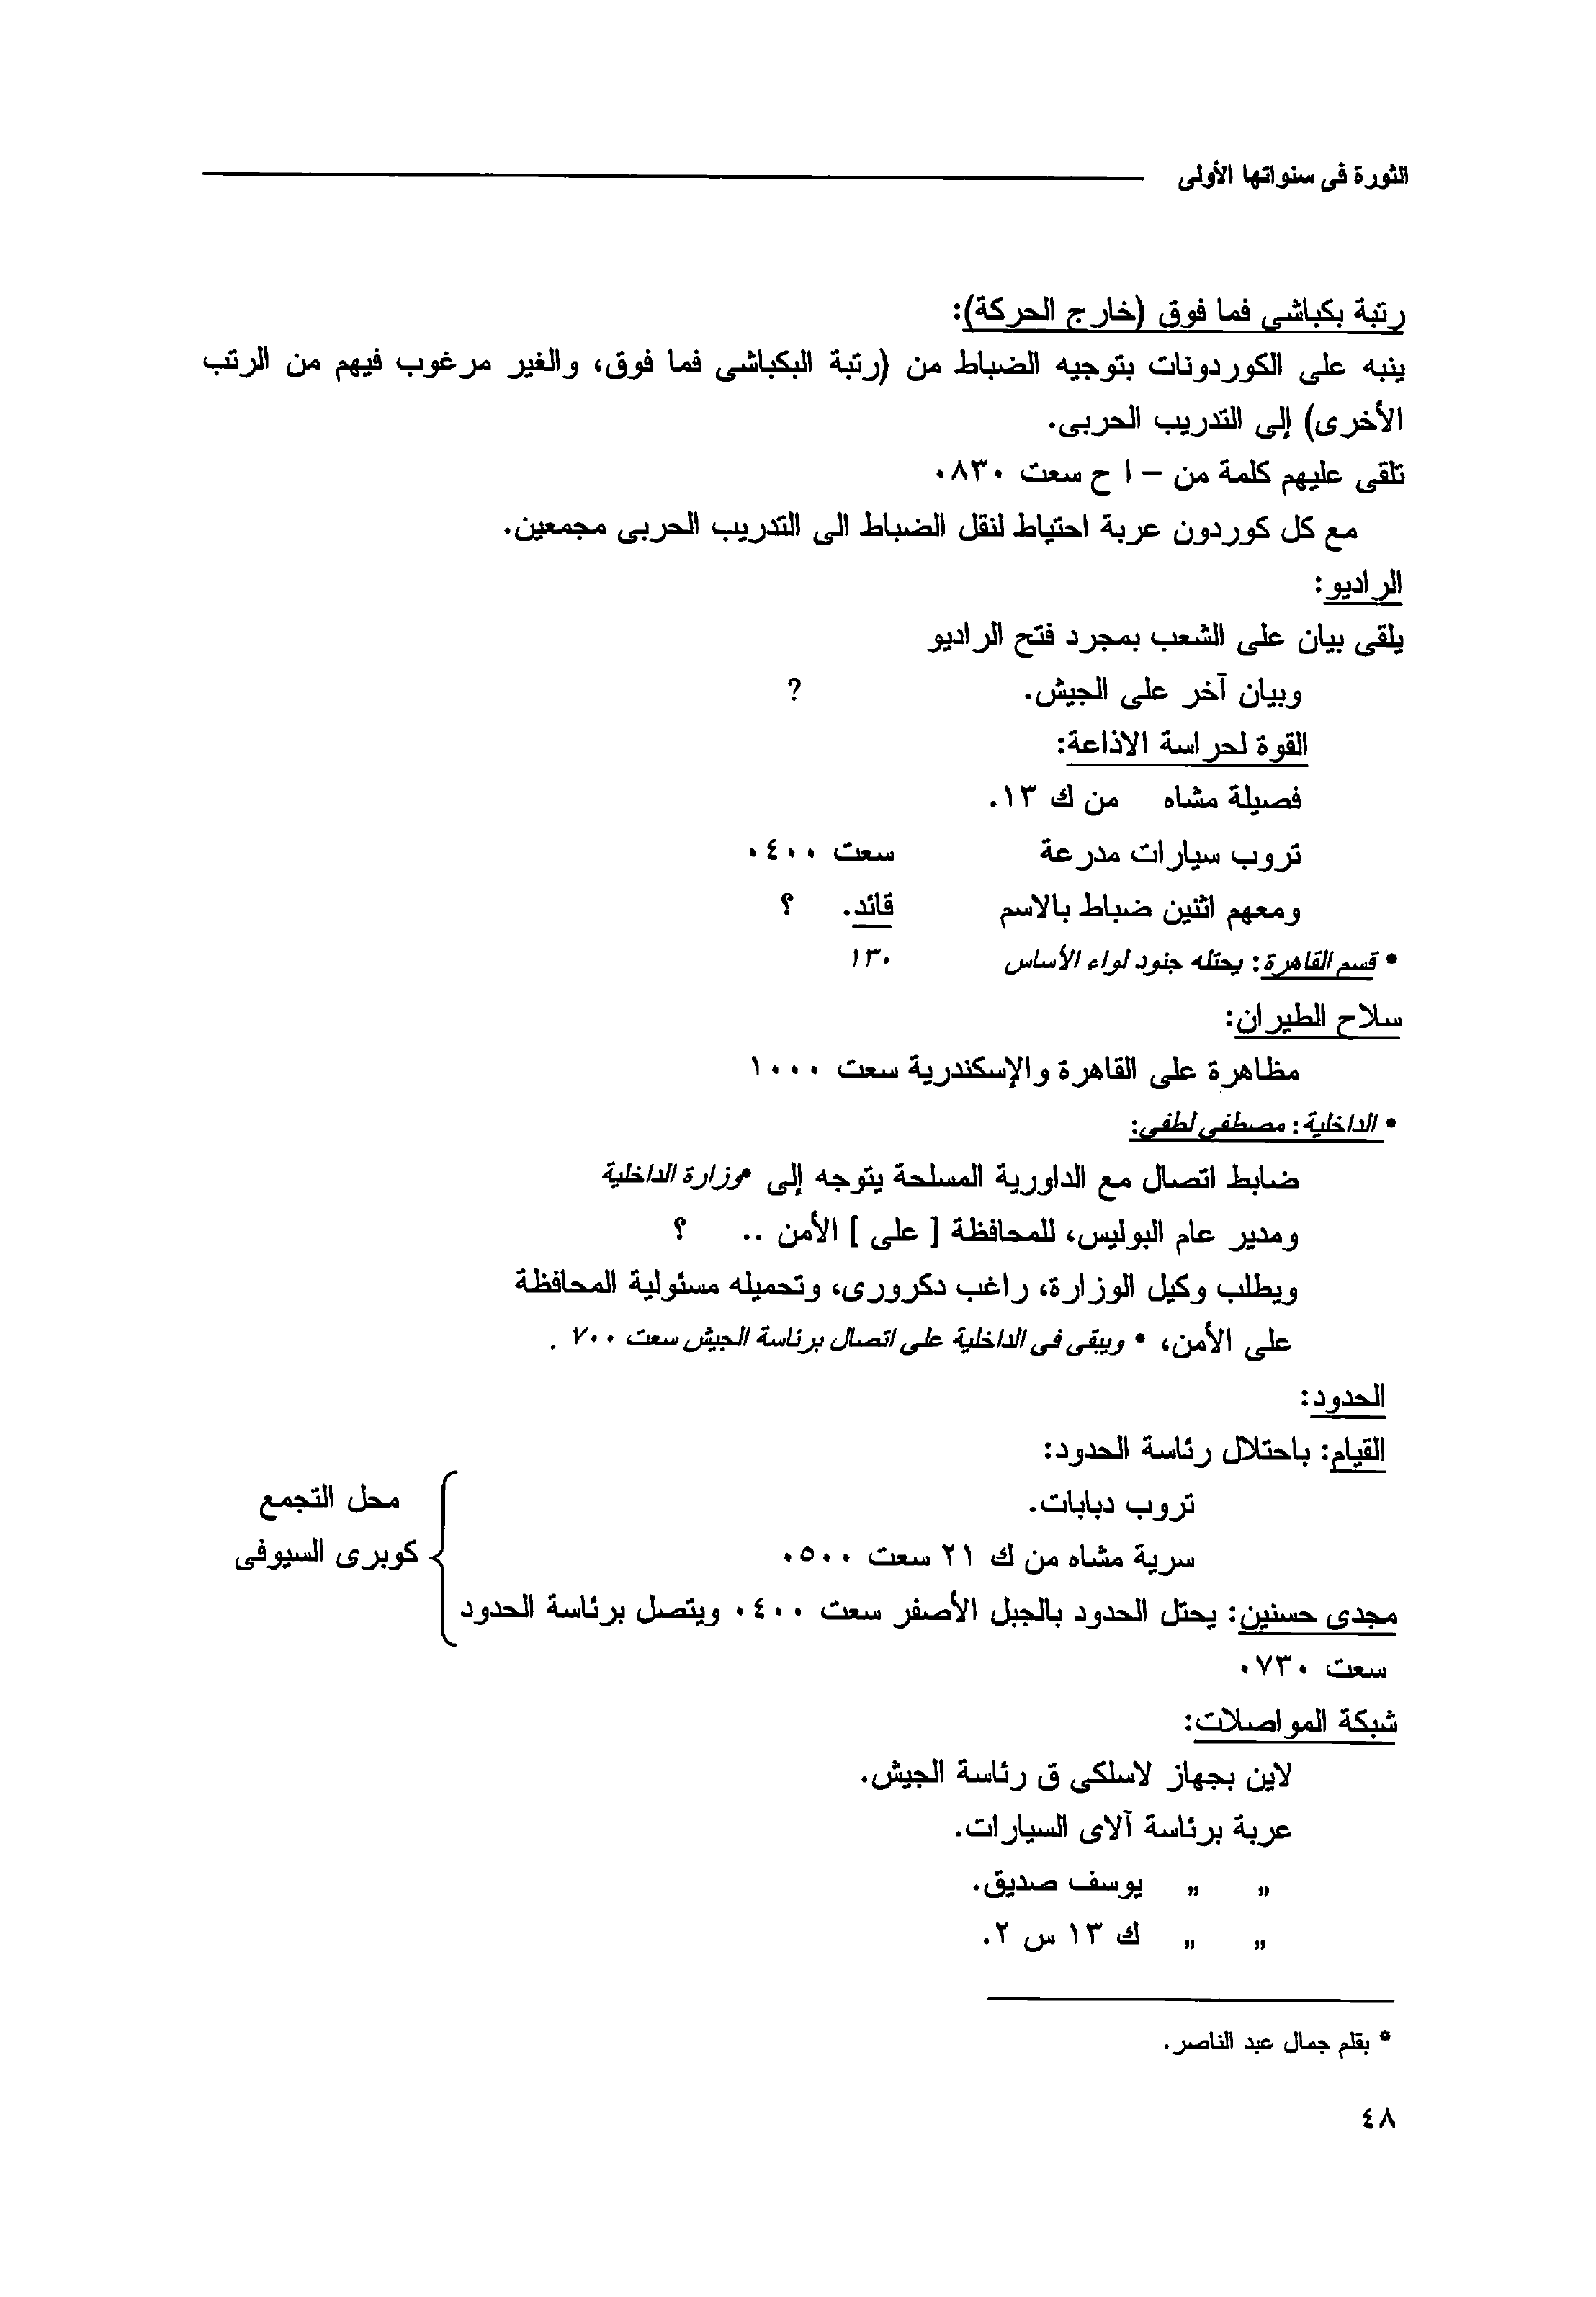 الثورة فى سنواتها الأولى
رتبة بكباشى فما فوق (خارج الحركة):
ينبه على الكوردونات بتوجيه الضباط من (رتبة البكباشى فما فوق، والغير مرغوب فيهم من الرتب
الأخرى) إلى التدريب الحربى.
تلقى عليهم كلمة من – ا ح سعت ٠٨٣٠
مع كل كوردون عربة احتياط لنقل الضباط الى التدريب الحربى مجمعين.
الراديو:
يلقى بيان على الشعب بمجرد فتح الراديو
وبيان آخر على الجيش. ?
القوة لحراسة الاذاعة:
فصيلة مشاه من ك ١٣.
تروب سيارات مدرعة سعت ٠٤٠٠
ومعهم اثنين ضباط بالاسم قائد. ؟
* قسم القاهرة: يحتله جنود لواء الأساس ١٣٠
سلاح الطيران:
مظاهرة على القاهرة والإسكندرية سعت ١٠٠٠
* الداخلية: مصطفى لطفى:
ضابط اتصال مع الداورية المسلحة يتوجه إلى *وزارة الداخلية
ومدير عام البوليس، للمحافظة [ على ] الأمن .. ؟
ويطلب وكيل الوزارة، راغب دكرورى، وتحميله مسئولية المحافظة
على الأمن، * ويبقى فى الداخلية على اتصال برئاسة الجيش سعت ٧٠٠ .
الحدود:
القيام: باحتلال رئاسة الحدود:
تروب دبابات. محل التجمع
سرية مشاه من ك ٢١ سعت ٠٥٠٠ كوبرى السيوفى
مجدى حسنين: يحتل الحدود بالجبل الأصفر سعت ٠٤٠٠ ويتصل برئاسة الحدود
سعت ٠٧٣٠
شبكة المواصلات:
لاين بجهاز لاسلكى ق رئاسة الجيش.
عربة برئاسة آلاى السيارات.
„ „ يوسف صديق.
„ „ ك ١٣ س ٢.
* بقلم جمال عبد الناصر.
٤٨